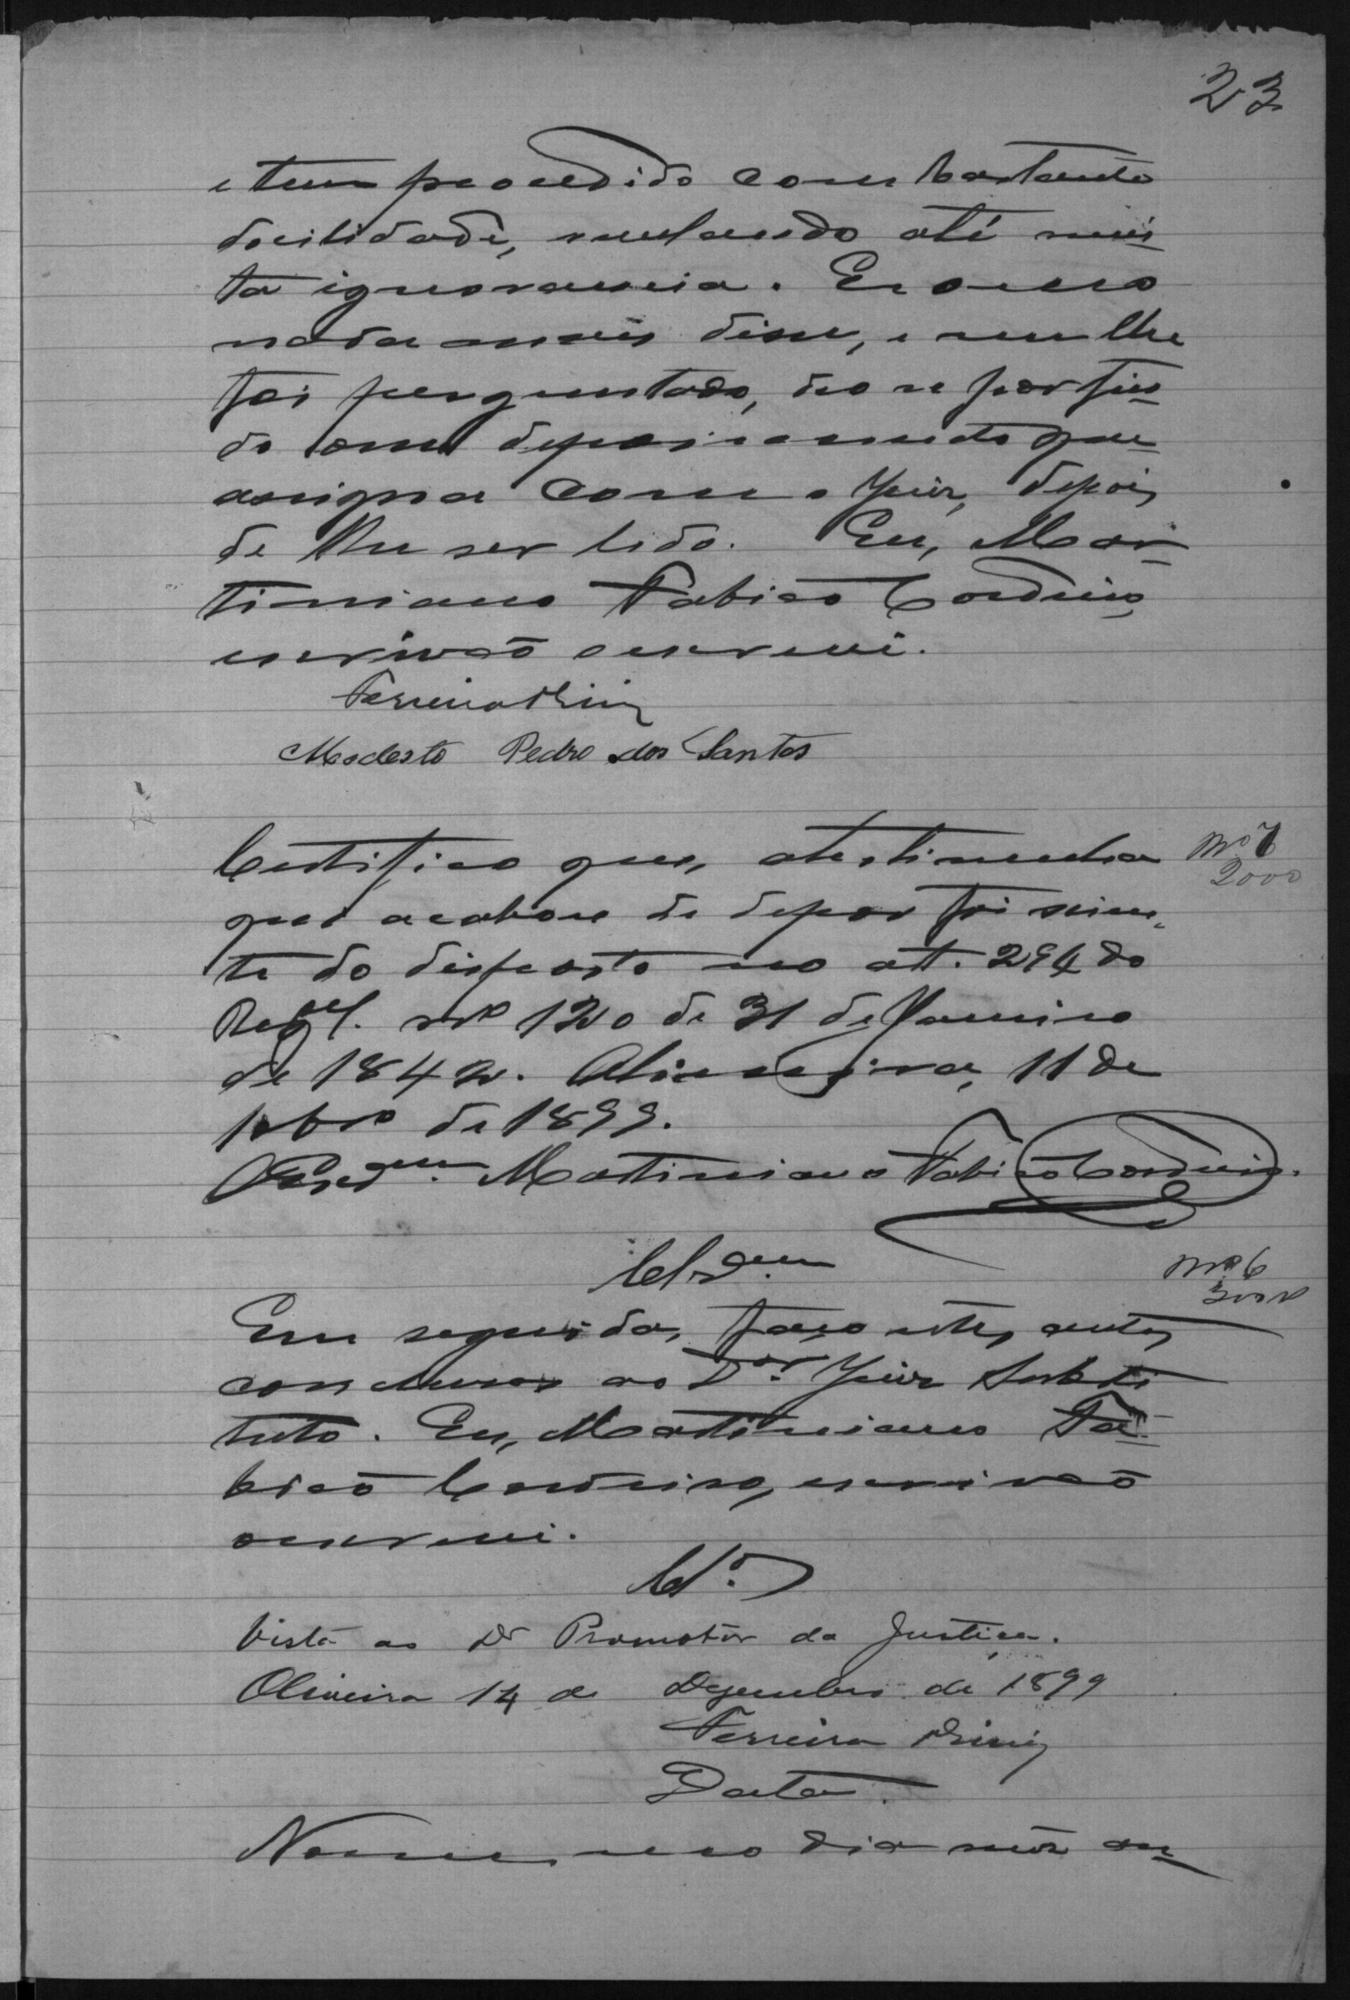 23
e tem procedido com bastante
docilidade, revelando até mui-
ta ignorancia. E como
nada mais disse, e nem lhe
foi perguntado, deo-se por fin-
do este depoimento que
assigna com o Juiz, depois
de lhe ser lido. Eu, Mar-
timiano Fabião Cordeiro,
escrivão o escrevi.
Ferreira Diniz
Modesto Pedro dos Santos
Certifico que, a testimunha
que acabou de depor foi scien-
te do disposto no art. 294 do
Regul. nº 120 de 31 de Janeiro
de 1842. Oliveira, 11 de
de 1899.
Martimiano Fabião Cordeiro.
Nº 7
2000
Clsam.
Nº 6
Em seguida, faço estes autos
conclusos ao Dor. Juiz Substi
tuto. Eu, Martimiano Fa-
bião Cordeiro, escrivão
o escrevi.
Cls.
Vista ao Dr Promotor da Justiça.
Oliveira 14 de Dezembro de 1899
Ferreira Diniz
Data.
No mesmo dia mez an-